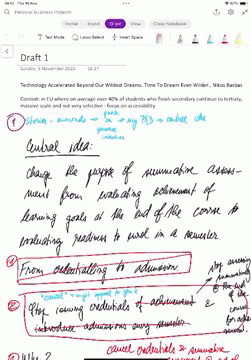 18:12 Nov 11 Nov
Personal Business Projects
Home Insert Draw View Class Notebook
Text Mode Lasso Select Insert Space
Draft 1
Sunday, 5 November 2023 18:27
Technology Accelerated Beyond Our Wildest Dreams. Time To Dream Even Wilder., Nikos Basbas
Context: in EU where on average over 40% of students who finish secondary continue to tertiary,
massive scale and not very selective - focus on accessibility
1 Stories - my PhD → central idea
Central idea:
change the purpose of summative assess-
ment from evaluating achievement of
learning goals at the end of the course to
evaluating readiness to enrol in a semester.
From credentialling to admission
"cancel" might appeal to gen z
2 Stop issuing credentials of achievement &
introduce admissions every semester
stop assessing
summatively
@ the end
of the
course
cancel credentials & summative